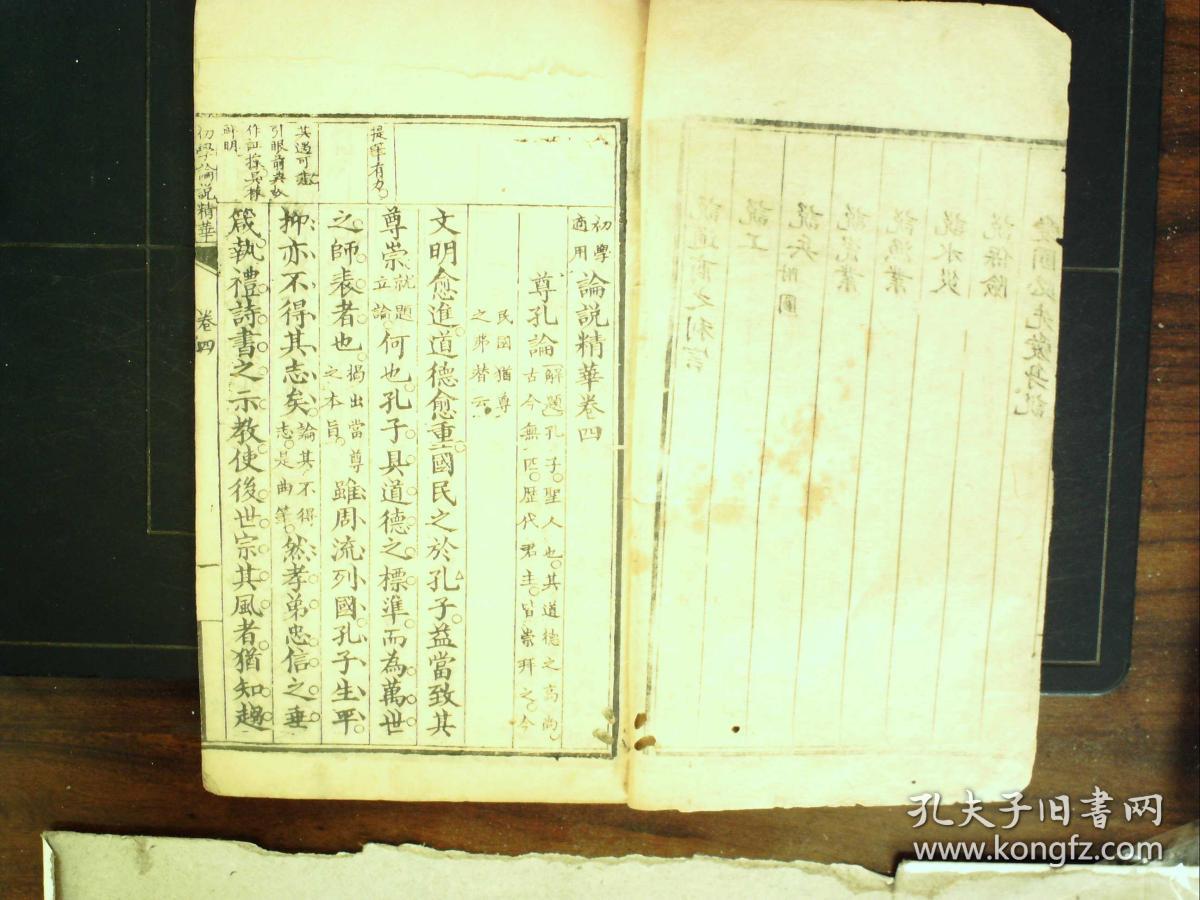 初學適用論説精華卷四
尊孔論解題孔子聖人也其道德之高尚古今無匹歷代君主皆崇拜之今
民國猶尊之弗替云
文明愈進道德愈重國民之於孔子益當致其
尊崇就題立論何也孔子具道德之標準而為萬世
之師表者也揭出當尊之本旨雖周流列國孔子生平
抑亦不得其志矣論其不得志是曲筆然孝弟忠信之垂
箴執禮詩書之示教使後世宗其風者猶知趨
提筆有力
其遇可悲
引眼前典故
解明
初學論説精華 卷四 一
説保險
説水災
説漁業
説兵附圖
説工
孔夫子旧書网
www.kongfz.com